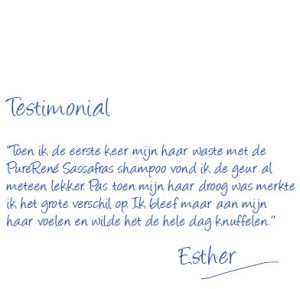 Testimonial
"Toen ik de eerste keer mijn haar waste met de
PureRené Sassafras shampoo vond ik de geur al
meteen lekker. Pas toen mijn haar droog was merkte
ik het grote verschil op. Ik bleef maar aan mijn
haar voelen en wilde het de hele dag knuffelen."
Esther